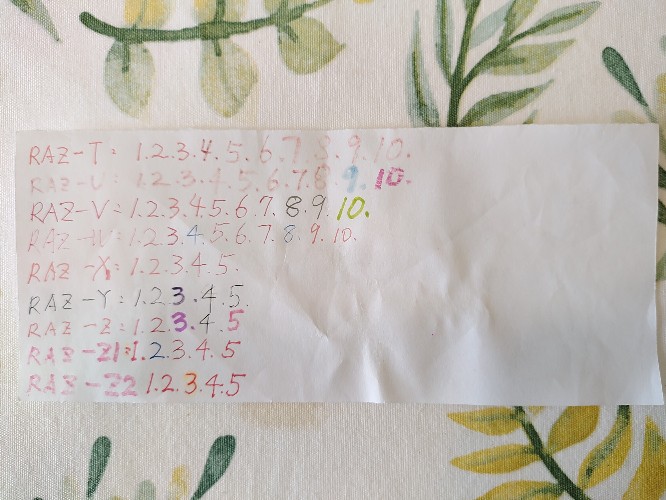 RAZ-T: 1.2.3.4.5.6.7.8.9.10.
RAZ-U: 1.2.3.4.5.6.7.8.9.10.
RAZ-V: 1.2.3.4.5.6.7.8.9.10.
RAZ-W: 1.2.3.4.5.6.7.8.9.10.
RAZ-X: 1.2.3.4.5.
RAZ-Y: 1.2.3.4.5.
RAZ-Z: 1.2.3.4.5
RAZ-Z1: 1.2.3.4.5
RAZ-Z2 1.2.3.4.5